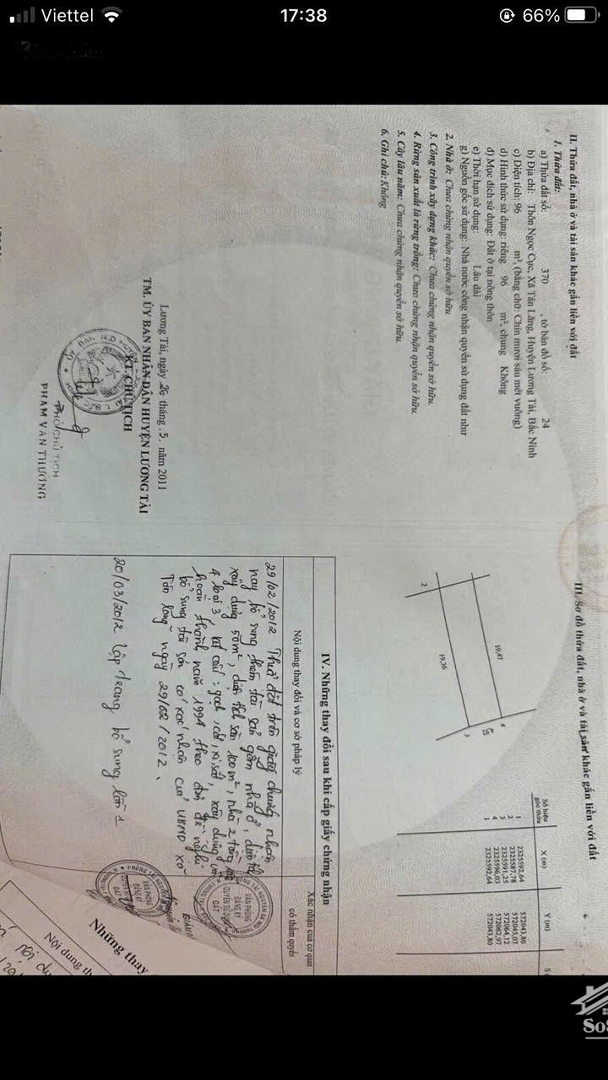 Viettel
17:38
66%
II. Thửa đất, nhà ở và tài sản khác gắn liền với đất
1. Thửa đất:
a) Thửa đất số: 370 , tờ bản đồ số: 24
b) Địa chỉ: Thôn Ngọc Cục, Xã Tân Lãng, Huyện Lương Tài, Bắc Ninh
c) Diện tích: 96 m², (bằng chữ: Chín mươi sáu mét vuông)
d) Hình thức sử dụng: riêng 96 m², chung Không
đ) Mục đích sử dụng: Đất ở tại nông thôn
e) Thời hạn sử dụng: Lâu dài
g) Nguồn gốc sử dụng: Nhà nước công nhận quyền sử dụng đất như
2. Nhà ở: Chưa chứng nhận quyền sở hữu
3. Công trình xây dựng khác: Chưa chứng nhận quyền sở hữu.
4. Rừng sản xuất là rừng trồng: Chưa chứng nhận quyền sở hữu.
5. Cây lâu năm: Chưa chứng nhận quyền sở hữu.
6. Ghi chú: Không
Lương Tài, ngày 26 tháng 5 năm 2011
TM. ỦY BAN NHÂN DÂN HUYỆN LƯƠNG TÀI
KT. CHỦ TỊCH
PHÓ CHỦ TỊCH
PHẠM VĂN THƯỜNG
III. Sơ đồ thửa đất, nhà ở và tài sản khác gắn liền với đất
19,47
19,26
2
3
4
Số hiệu góc thửa
X (m)
Y (m)
1 2325592,64 572043,80
2 2325587,78 572045,07
3 2325591,25 572064,12
4 2325596,03 572062,97
1 2325592,64 572043,80
IV. Những thay đổi sau khi cấp giấy chứng nhận
Nội dung thay đổi và cơ sở pháp lý
Xác nhận của cơ quan có thẩm quyền
29/02/2012 Thửa đất trên giấy chứng nhận
nay bổ sung thêm tài sản gồm nhà ở, diện
xây dựng 50m², diện tích sàn 100m², nhà 2 tầng
4 loại 3, kết cấu: gạch, xi, sắt, xây dựng
hoàn thành năm 1994 theo đơn đề nghị
bổ sung tài sản có xác nhận của UBND xã
Tân Lãng ngày 29/02/2012.
20/03/2012 lập trang bổ sung lần 1
VĂN PHÒNG
ĐĂNG KÝ
QUYỀN SỬ DỤNG
ĐẤT
Những thay
Nội dung th
nội du